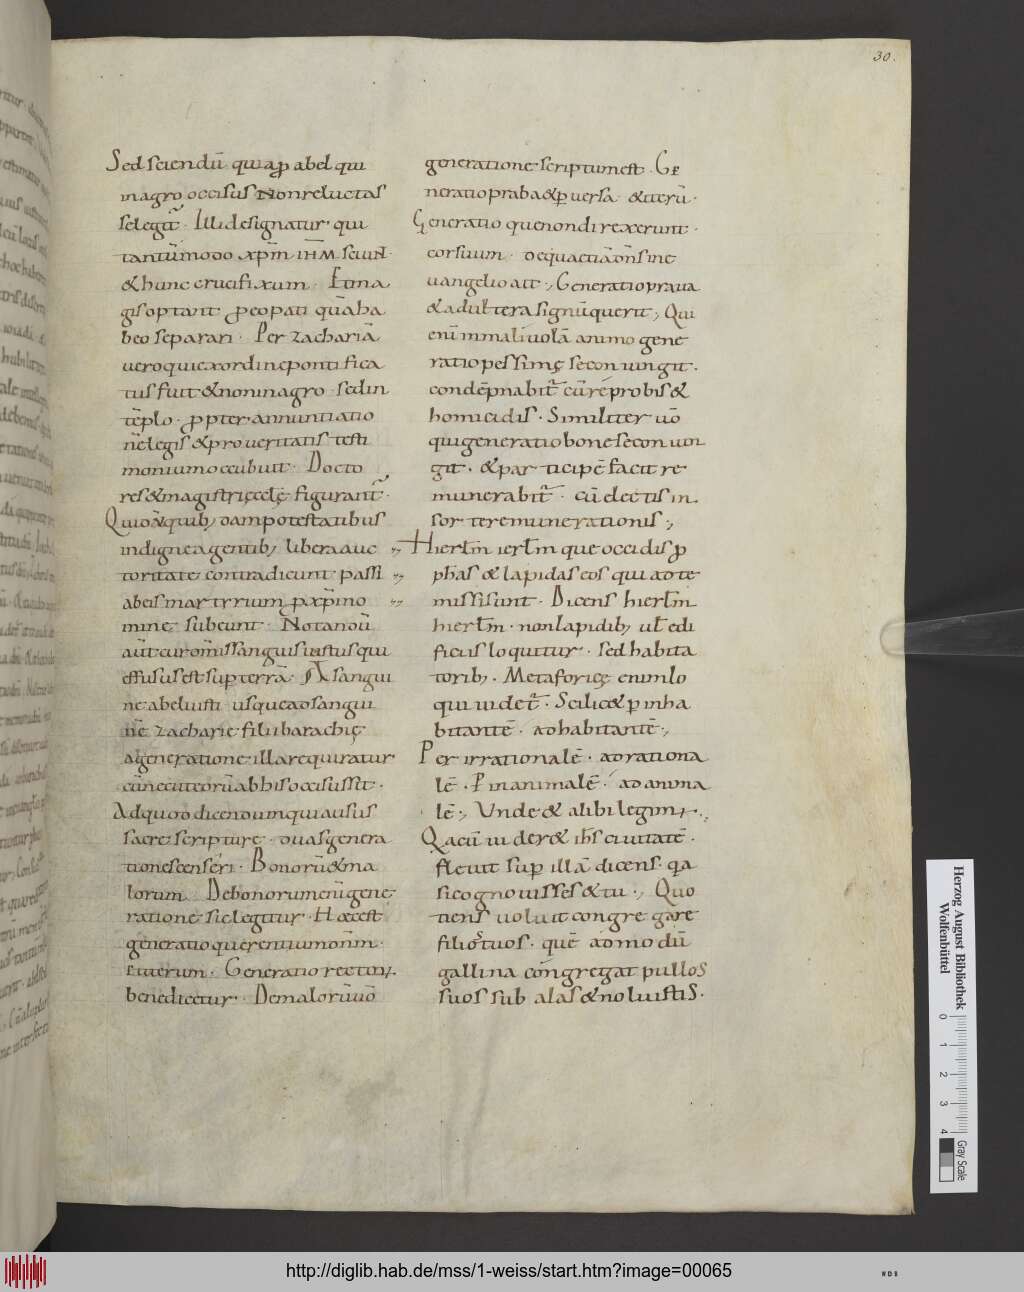 30.
Sed sciendū quia ꝑ abel qui
inagro occisus Nonreluctas
selegit̃ . Illi designatur qui
tantūmodo xp̄m ihm̄ sciunt
& hunc crucifixum . Et ma
gis optant ꝑeo pati quā ba
beo separari . Per zachariā
uero quiexordinepontifica
tus fuit & noninagro . sedin
tēplo . ꝓpter annuntiatio
nē legis & pro ueritatis testi
monium occubuit . Docto
res & magistri ęcclę figurant̃ .
Quidā quib; dampotestatibus
indigne agentib; libera auc
toritate contradicunt passi
abeis martyrium ꝓ xp̄i no
mine subeunt . Notandū
aūt cur om̄is sanguis iustus qui
effusus est sup terrā . A sangui
ne abel iusti usque ad sangui
nē zacharie filii barachię
ageneratione illa requiratur
cū nec uterū abhis occisus sit .
Ad quod dicendum quia usus
sacre scripturę . duas genera
tiones censeri . Bonorū & ma
lorum . De bonorum enī gene
ratione sic legitur . Hęc est
generatio querentium dn̄m .
& iterum . Generatio rectorꝝ
benedicetur . De malorū uō
generatione scriptum est . Ge
neratio praba & ꝑuersa . & iterū .
Generatio que non direxerunt .
cor suum . de qua etiā dn̄s in e
uangelio ait ., Generatio praua
& adultera signū querit ., Qui
enī in maliuolā animo gene
ratio pessimę se coniungit .
condēpnabit̃ cū reprobis &
homicidis . Similiter uō
qui generatio bone se coniun
git . & participē facit re
munerabit̃ . cū electis in
sorte remunerationis .,
Hierlm̄ ierlm̄ que occidis ꝓ
ph̄as & lapidas eos qui ad te
missi sunt . Dicens hierlm̄
hierlm̄ . non lapidib; ul̄ edi
ficiis loquitur . sed habita
torib; . Metaforicę enim lo
qui uidet̃ . Scilic& ꝑ inha
bitantē . ad habitantē .,
Per irrationalē . ad rationa
lē . P inanimalē . ad anima
lē ., Unde & alibi legimꝰ .,
Q acū uider& ih̄s ciuitatē .
fleuit sup illā dicens . qa
si cognouisses & tu ., Quo
tiens uolui congregare
filios tuos . quē admodū
gallina congregat pullos
suos sub alas & noluistis .
Herzog August Bibliothek
Wolfenbüttel
0 1 2 3 4
Gray Scale
http://diglib.hab.de/mss/1-weiss/start.htm?image=00065